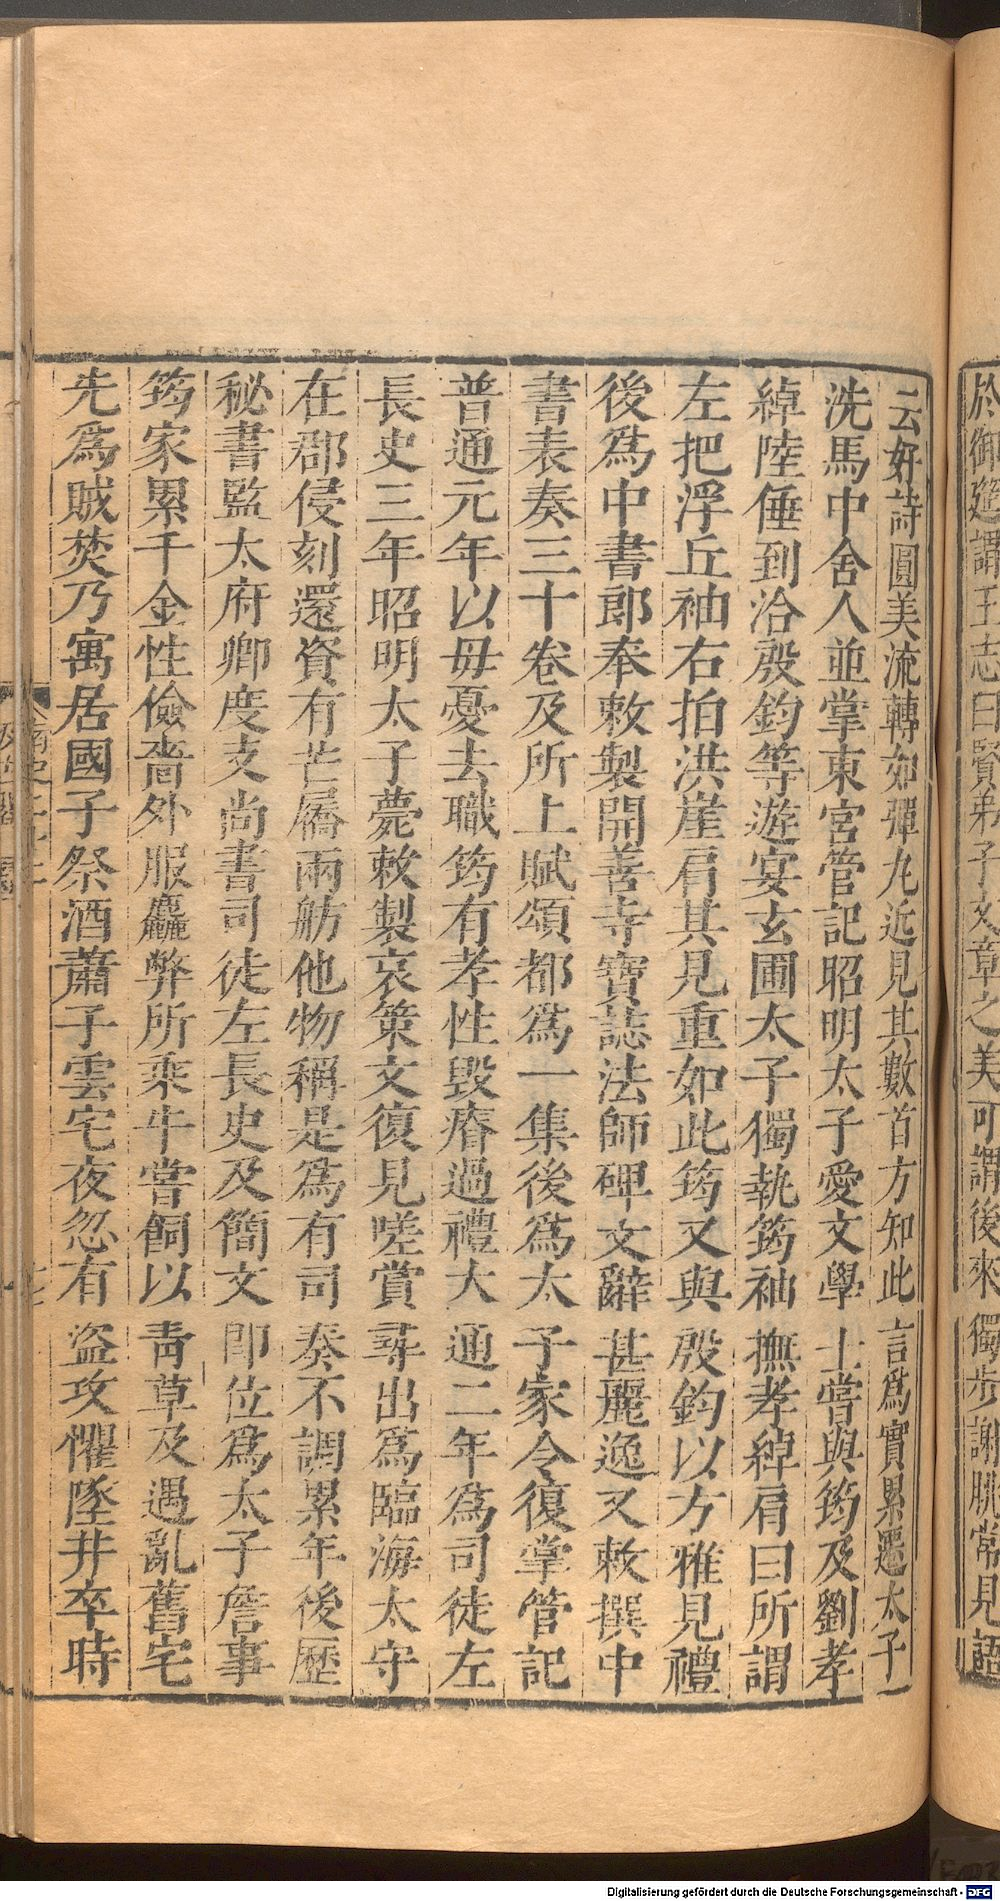 於御筵謂王志曰賢弟子文章之美可謂後來獨步謝朓常見語
云好詩圓美流轉如彈丸近見其數首方知此言爲實累遷太子
洗馬中舍人並掌東宮管記昭明太子愛文學士嘗與筠及劉孝
綽陸倕到洽殷鈞等遊宴玄圃太子獨執筠袖撫孝綽肩曰所謂
左把浮丘袖右拍洪崖肩其見重如此筠又與殷鈞以方雅見禮
後爲中書郎奉敕製開善寺寶誌法師碑文辭甚麗逸又敕撰中
書表奏三十卷及所上賦頌都爲一集後爲太子家令復掌管記
普通元年以毋憂去職筠有孝性毀瘠過禮大通二年爲司徒左
長史三年昭明太子薨敕製哀策文復見嗟賞尋出爲臨海太守
在郡侵刻還資有芒屩兩舫他物稱是爲有司奏不調累年後歷
秘書監太府卿度支尚書司徒左長史及簡文卽位爲太子詹事
筠家累千金性儉嗇外服麤弊所乘牛嘗飼以靑草及遇亂舊宅
先爲賊焚乃寓居國子祭酒蕭子雲宅夜忽有盜攻懼墜井卒時
Digitalisierung gefördert durch die Deutsche Forschungsgemeinschaft - DFG